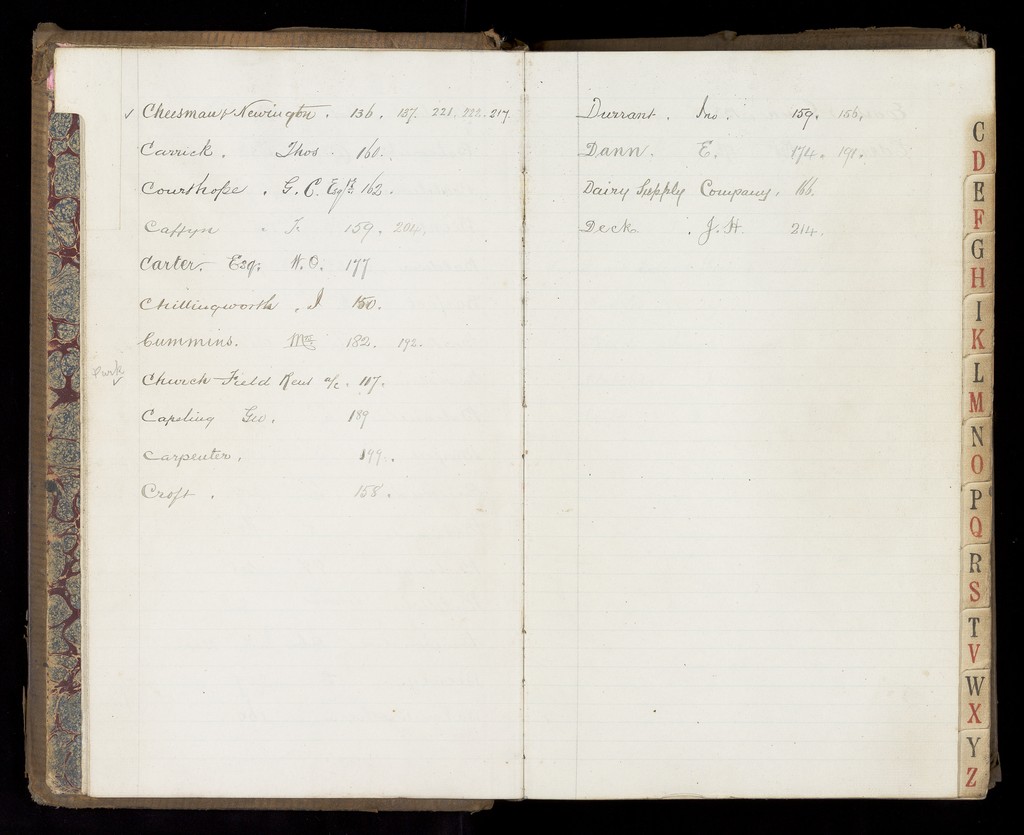 Cheesman & Newington. 136. 137. 221. 222. 217.
Carrick. Thos. 160.
Courthope. G. C. Esqre 162.
Caffyn. F. 159. 204.
Carter. Esq. W.O. 177
Chillingworth. J 150.
Cummins. Mr. 182. 192.
Church Field Rent a/c. 117.
Capeling Geo. 189
Carpenter. 199.
Croft. 158.
Durrant. Jno. 159. 156.
Dann. E. 174. 191.
Dairy Supply Company. 166.
Deck. J. H. 214.
C
D
E
F
G
H
I
K
L
M
N
O
P
Q
R
S
T
V
W
X
Y
Z